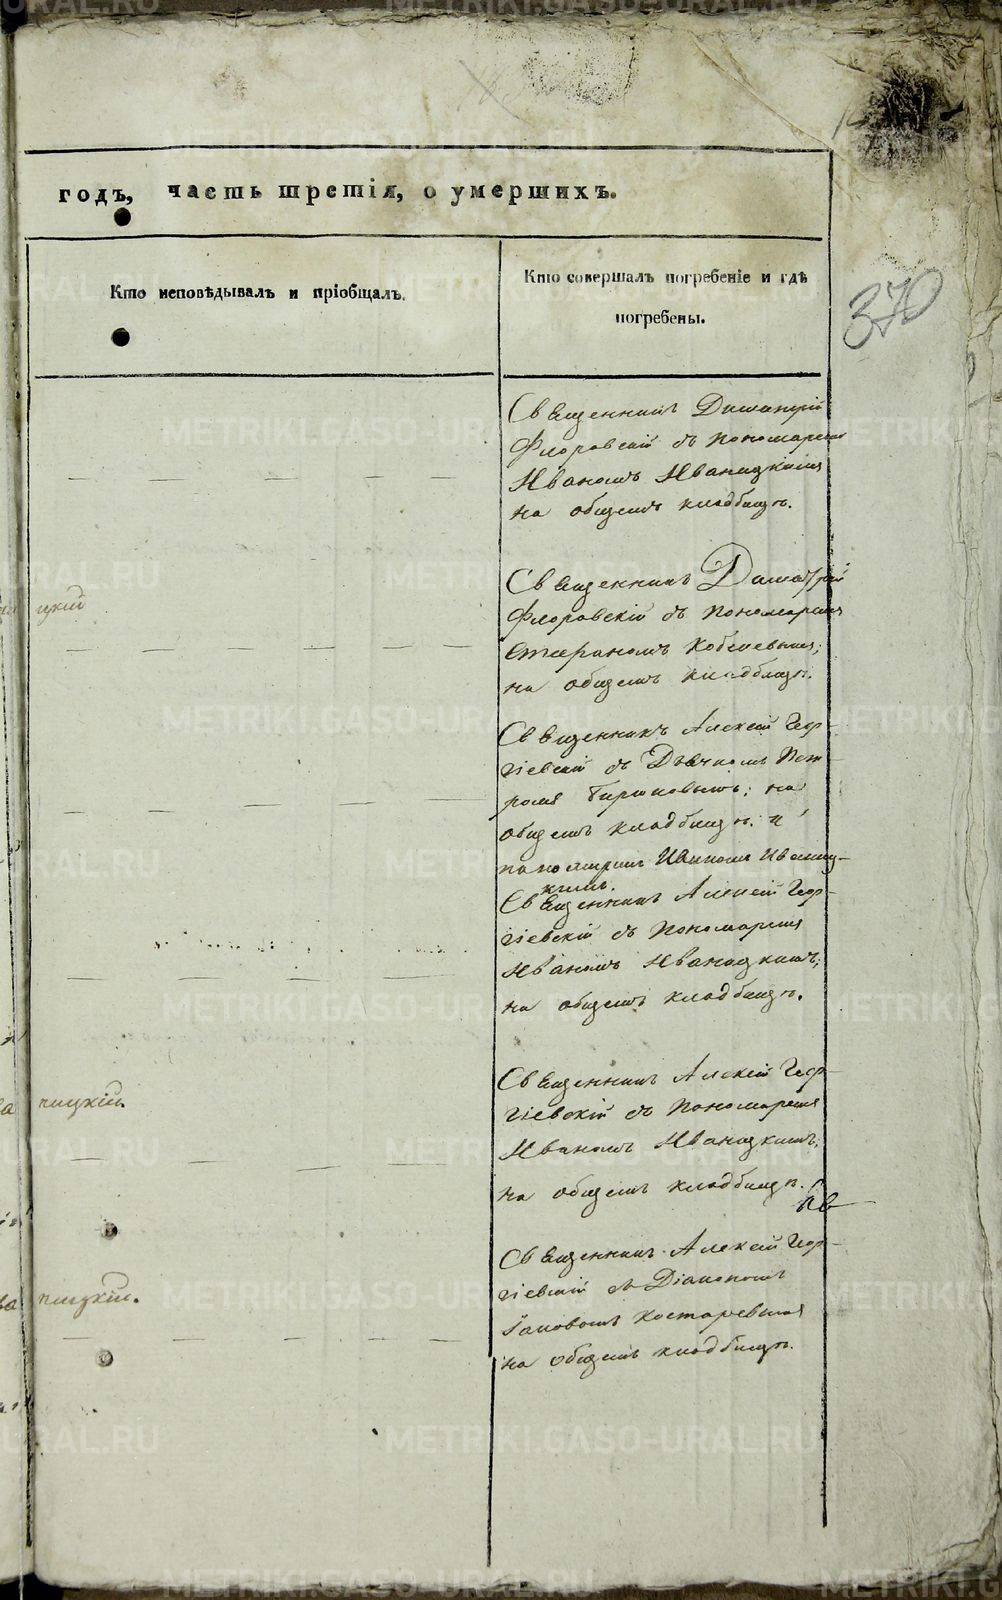 годъ, часть третія, о умершихъ.
Кто исповѣдывалъ и пріобщалъ.
Кто совершалъ погребеніе и гдѣ
погребены.
370
Священникъ Димитрій
Флоровскій съ Пономаремъ
Иваномъ Иваницкимъ
на общемъ кладбищѣ.
Священникъ Димитрій
Флоровскій съ Пономаремъ
Стефаномъ Кобелевымъ;
на общемъ кладбищѣ.
цкій
Священникъ Алексій Геор-
гіевскій съ Дьячкомъ Пет-
ромъ Бирюковымъ; на
общемъ кладбищѣ. и
пономаремъ Иваномъ Иваниц-
кимъ.
Священникъ Алексій Геор-
гіевскій съ Пономаремъ
Иваномъ Иваницкимъ;
на общемъ кладбищѣ.
Священникъ Алексій Геор-
гіевскій съ Пономаремъ
Иваномъ Иваницкимъ;
на общемъ кладбищѣ.
ницкій.
Священникъ Алексій Геор-
гіевскій съ Діакономъ
Іаковомъ Костаревымъ
на общемъ кладбищѣ.
ницкій.
METRIKI.GASO-URAL.RU